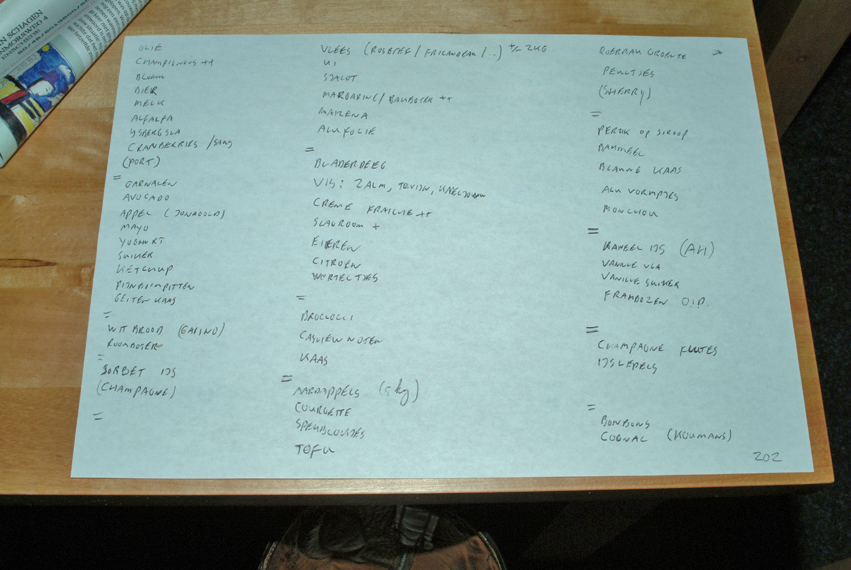 N SCHAGEN
OLIE
CHAMPIGNONS ++
BLOEM
BIER
MELK
ALFALFA
YSBERGSLA
CRANBERRIES /
(PORT)
=
GARNALEN
AVOCADO
APPEL (JONAGOLD)
MAYO
YOGHURT
SUIKER
KETCHUP
PIJNBOOMPITTEN
GEITEN KAAS
=
WIT BROOD (CASINO)
ROOMBOTER
=
SORBET IJS
(CHAMPAGNE)
=
VLEES (ROSBIEF / FRICANDEAU / ..) +/- 2KG
UI
SJALOT
MARGARINE/ BAKBOTER ++
MAIZENA
ALUFOLIE
=
BLADERDEEG
VIS: ZALM, TONIJN, KABELJAUW
CREME FRAICHE ++
SLAGROOM +
EIEREN
CITROEN
WORTELTJES
=
BROCCOLI
CASHEW NOTEN
KAAS
=
AARDAPPELS (kg)
COURGETTE
SPEKBLOKJES
TOFU
ROERBAK GROENTE
PEULTJES
(SHERRY)
=
PERZIK OP SIROOP
BLAUWE KAAS
ALU VORMPJES
MONCHOU
=
KANEEL IJS (AH)
VANILLE VLA
VANILLE SUIKER
FRAMBOZEN O.I.D.
=
CHAMPAGNE FLUTES
IJSLEPELS
=
BONBONS
COGNAC (KOUMANS)
202